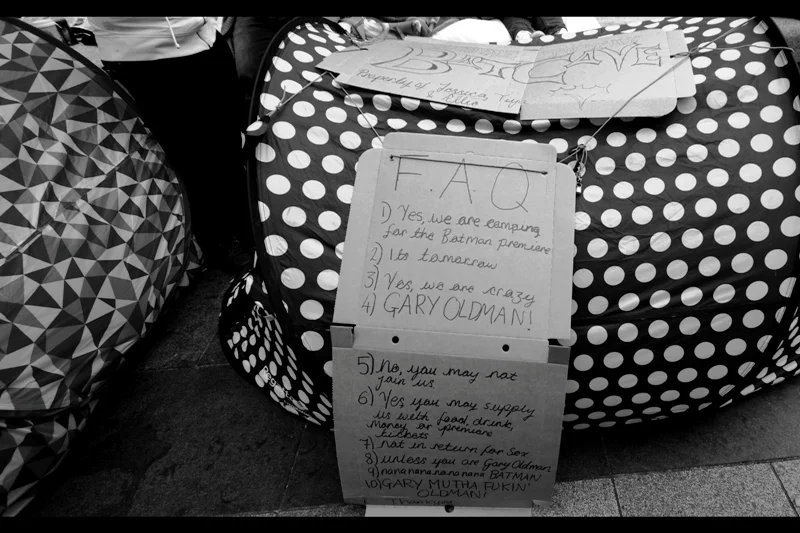 BATCAVE
Property of Jessica,
& Ellie
F.A.Q
1) Yes, we are camping
for the Batman premiere
2) Its tomorrow
3) Yes, we are crazy
4) GARY OLDMAN!
5) No, you may not
join us
6) Yes you may supply
us with food, drink,
money or premiere
tickets
7) not in return for sex
8) unless you are Gary Oldman
9) nanananananana BATMAN
10) GARY MUTHA FUKIN'
OLDMAN!